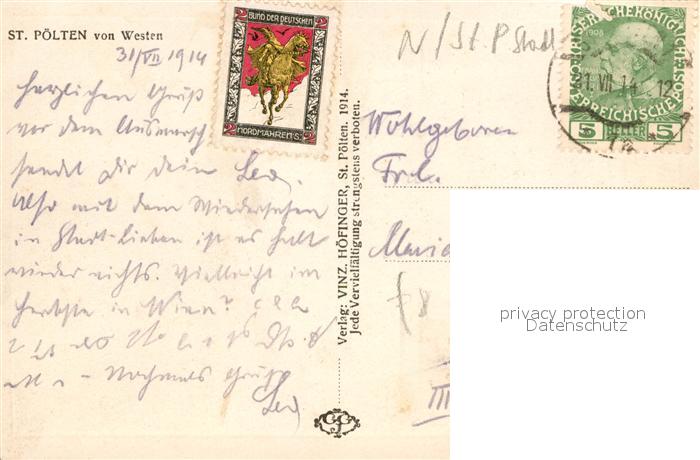 ST. PÖLTEN von Westen
31/VII 1914
Herzlichen Gruß
vor dem Ausmarsch
sendet Dir dein Leo.
Also mit dem Wiedersehen
in Stadt-Lieben ist es halt
wieder nichts. Vielleicht im
Herbste in Wien?
Nochmals Gruß
Leo
BUND DER DEUTSCHEN
2 2
2 NORDMÄHRENS. 2
Verlag: VINZ. HÖFINGER, St. Pölten. 1914.
Jede Vervielfältigung strengstens verboten.
N/St. P Stadt
1908
31. VII. 14 12
5 HELLER 5
Wohlgeboren
Frl.
Maria
III
privacy protection
Datenschutz